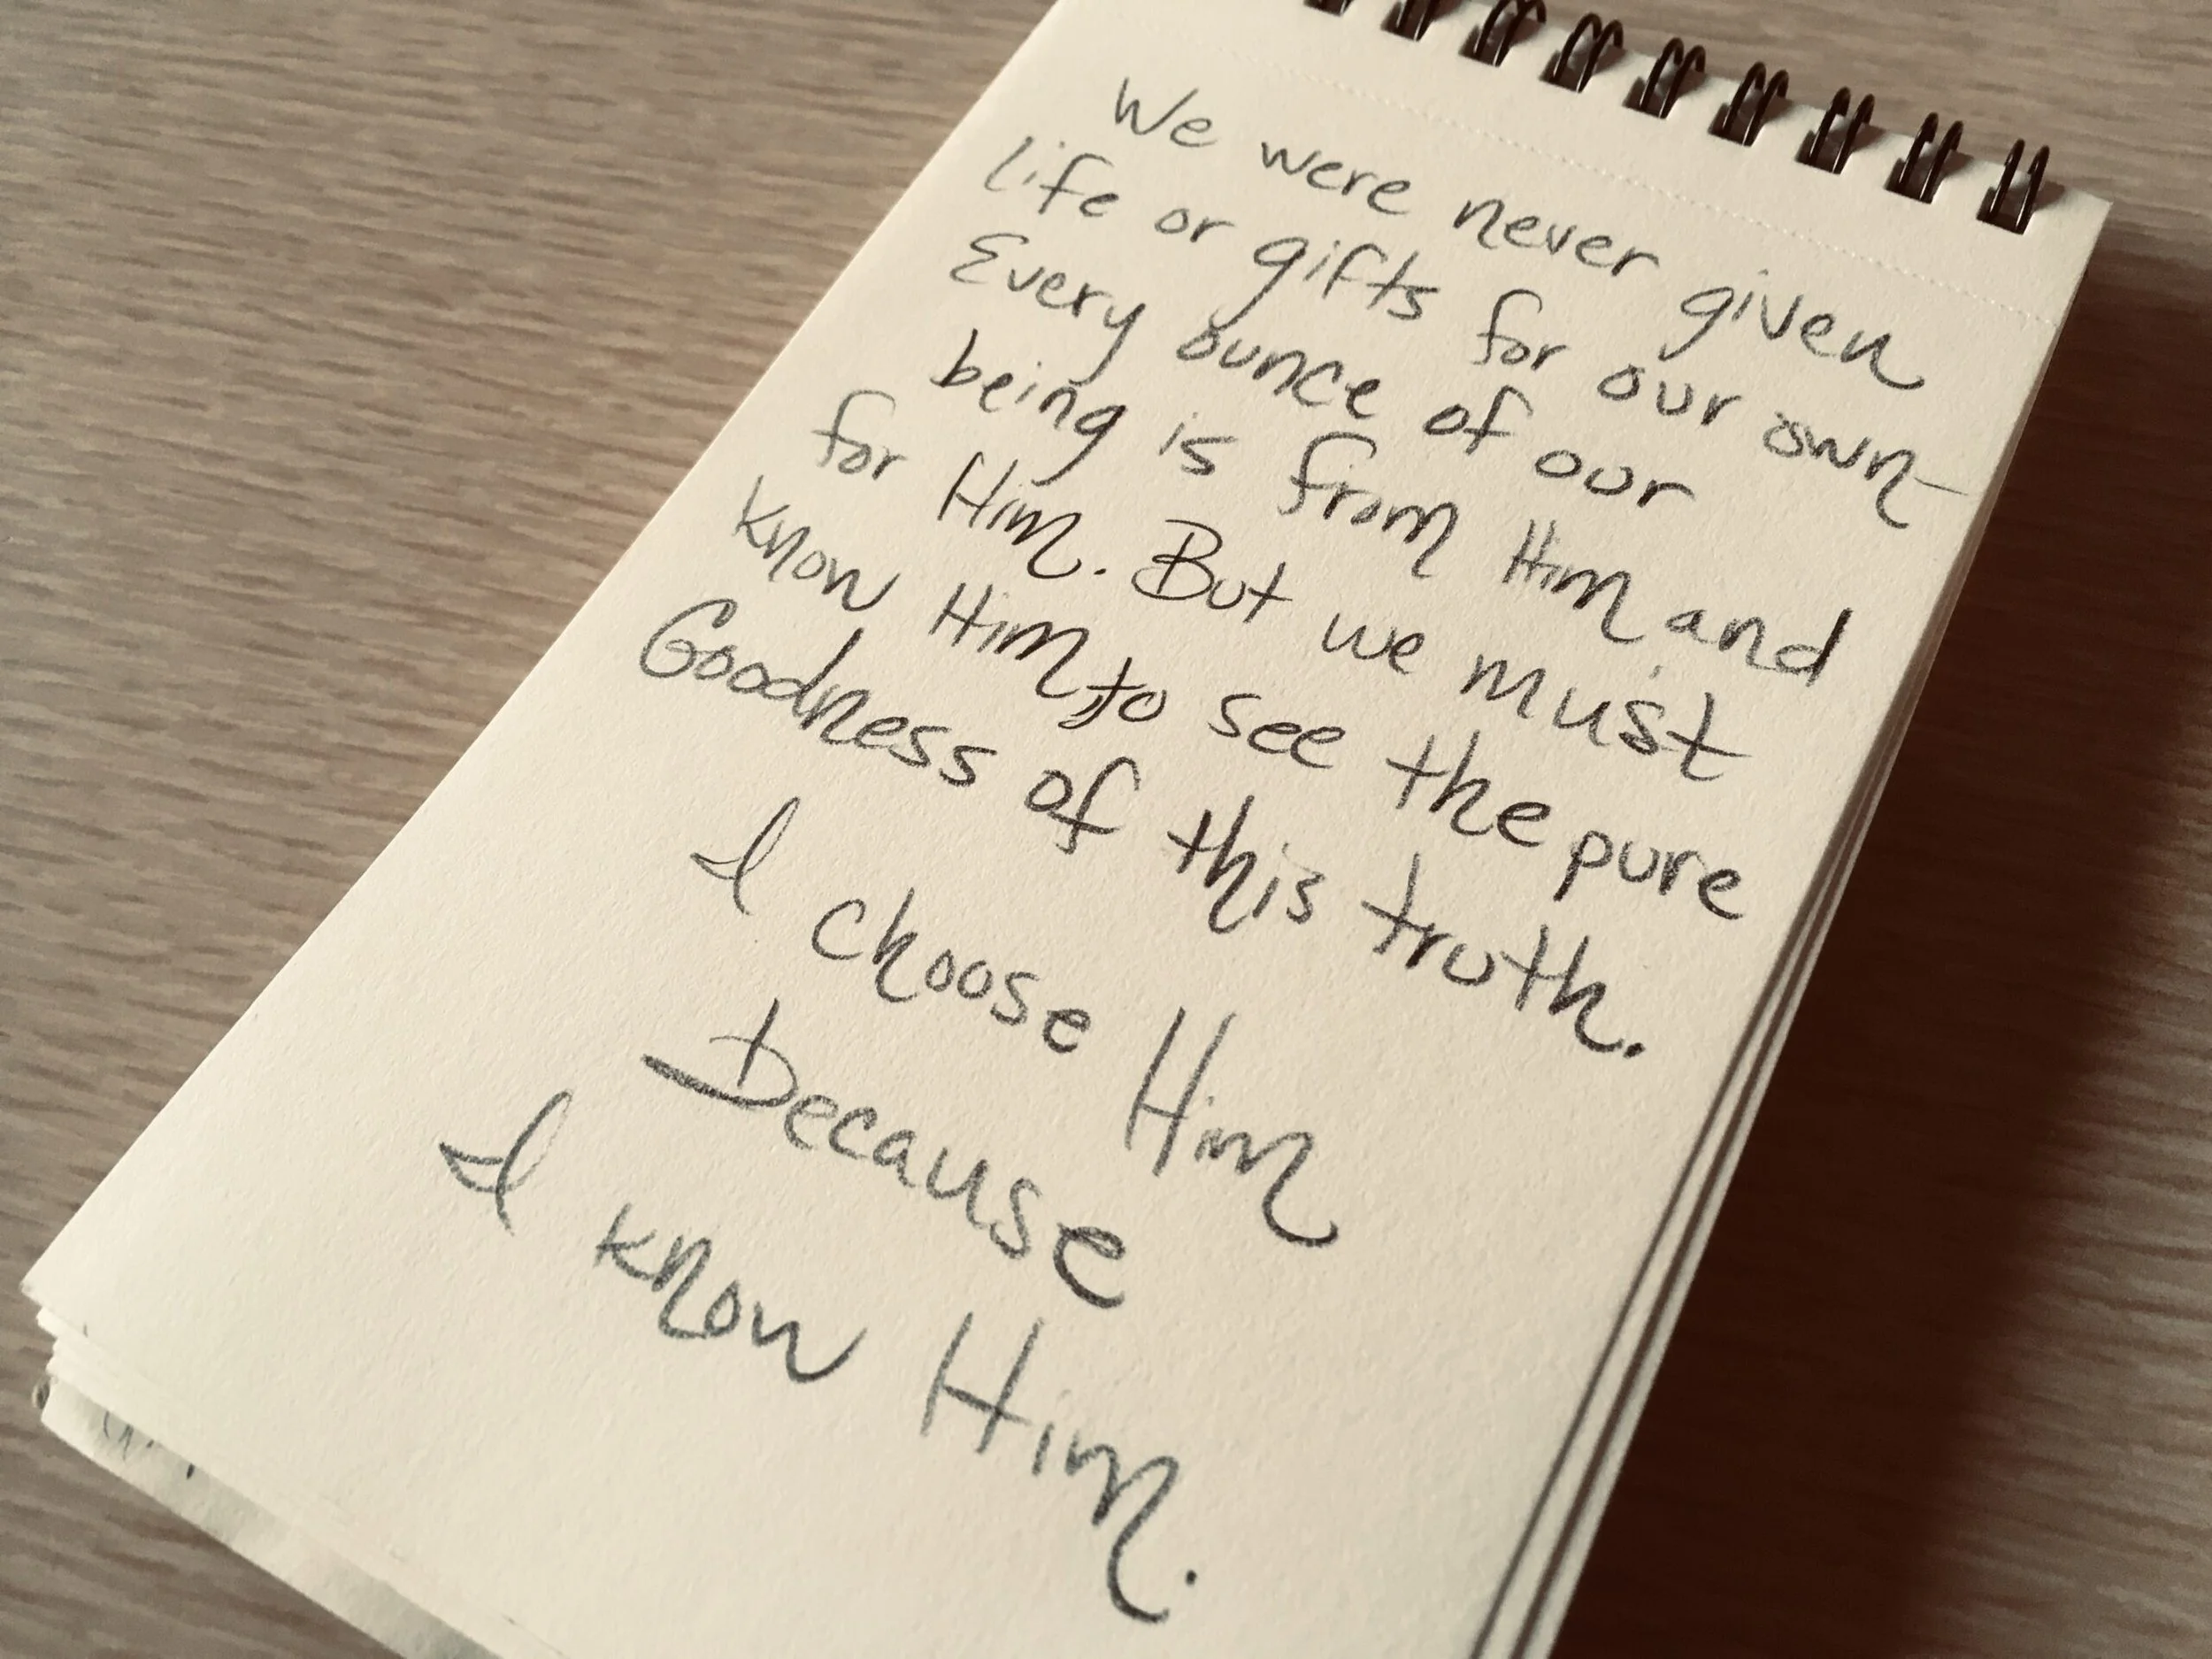 We were never given
life or gifts for our own-
Every ounce of our
being is from Him and
for Him. But we must
know Him to see the pure
Goodness of this truth.
I choose Him
Because
I know Him.